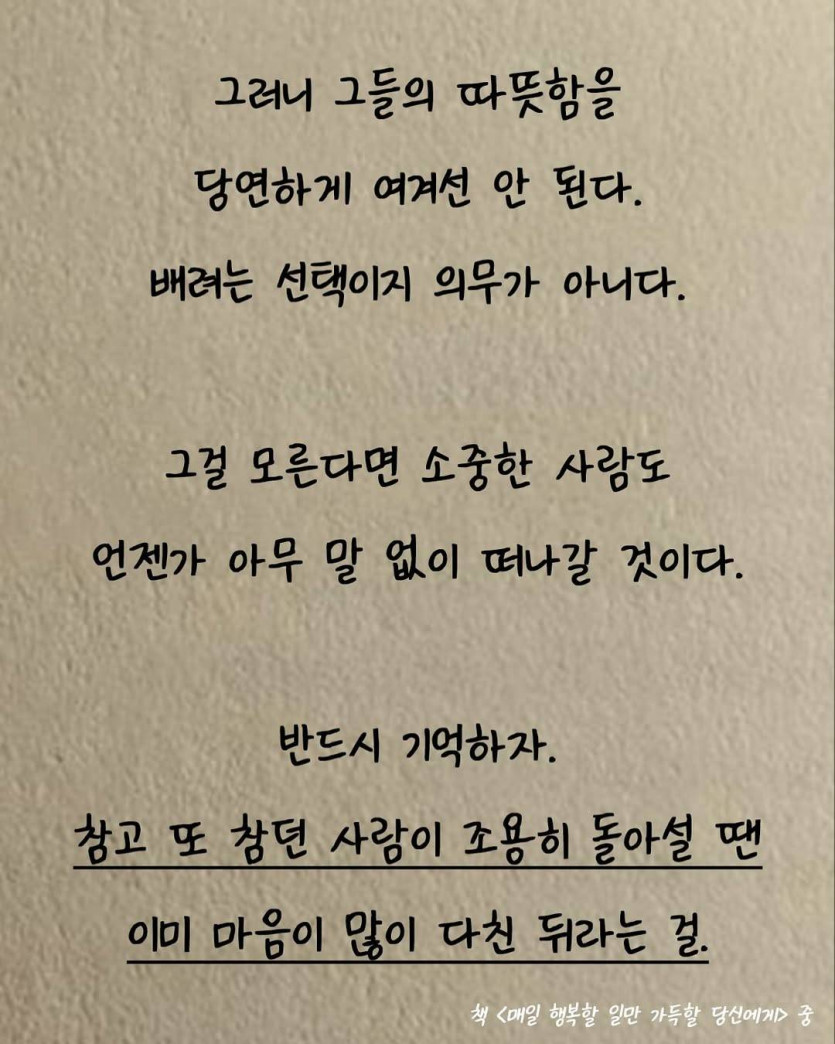 그러니 그들의 따뜻함을
당연하게 여겨선 안 된다.
배려는 선택이지 의무가 아니다.
그걸 모른다면 소중한 사람도
언젠가 아무 말 없이 떠나갈 것이다.
반드시 기억하자.
참고 또 참던 사람이 조용히 돌아설 땐
이미 마음이 많이 다친 뒤라는 걸.
책 <매일 행복할 일만 가득할 당신에게> 중